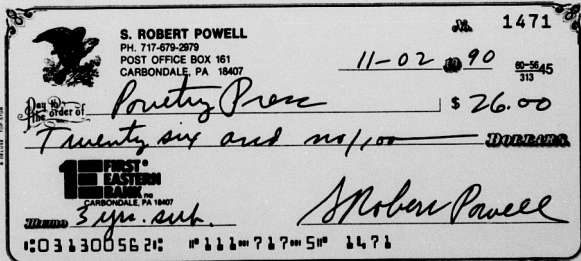 S. ROBERT POWELL No. 1471
PH. 717-679-2979
POST OFFICE BOX 161
CARBONDALE, PA 18407
11-02 19 90 60-5645
313
Pay to the order of Poultry Press $ 26.00
Twenty six and no/100 DOLLARS
FIRST
EASTERN
BANK
CARBONDALE, PA 18407
MEMO 3 yrs. sub. S Robert Powell
⑆031300562⑆ ⑈111⑉717⑉5⑈ 1471